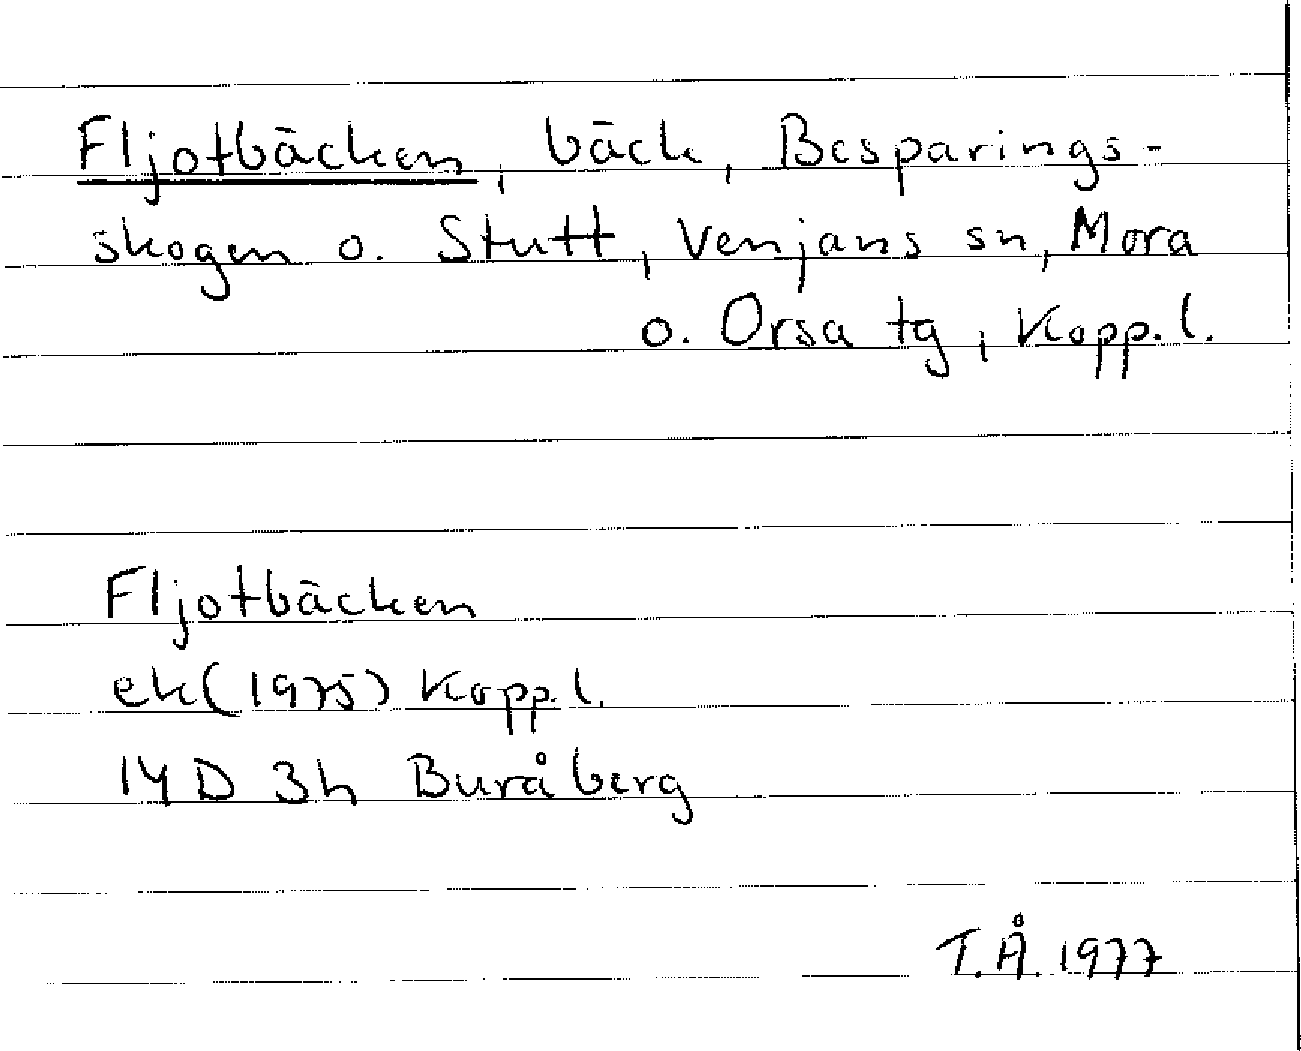 Fljotbäcken, bäck, Besparings-
skogen o. Stutt, Venjans sn, Mora
o. Orsa tg, Kopp. l.
Fljotbäcken
ek (1975) Kopp. l.
14 D 3h Buråberg
T.Å. 1977